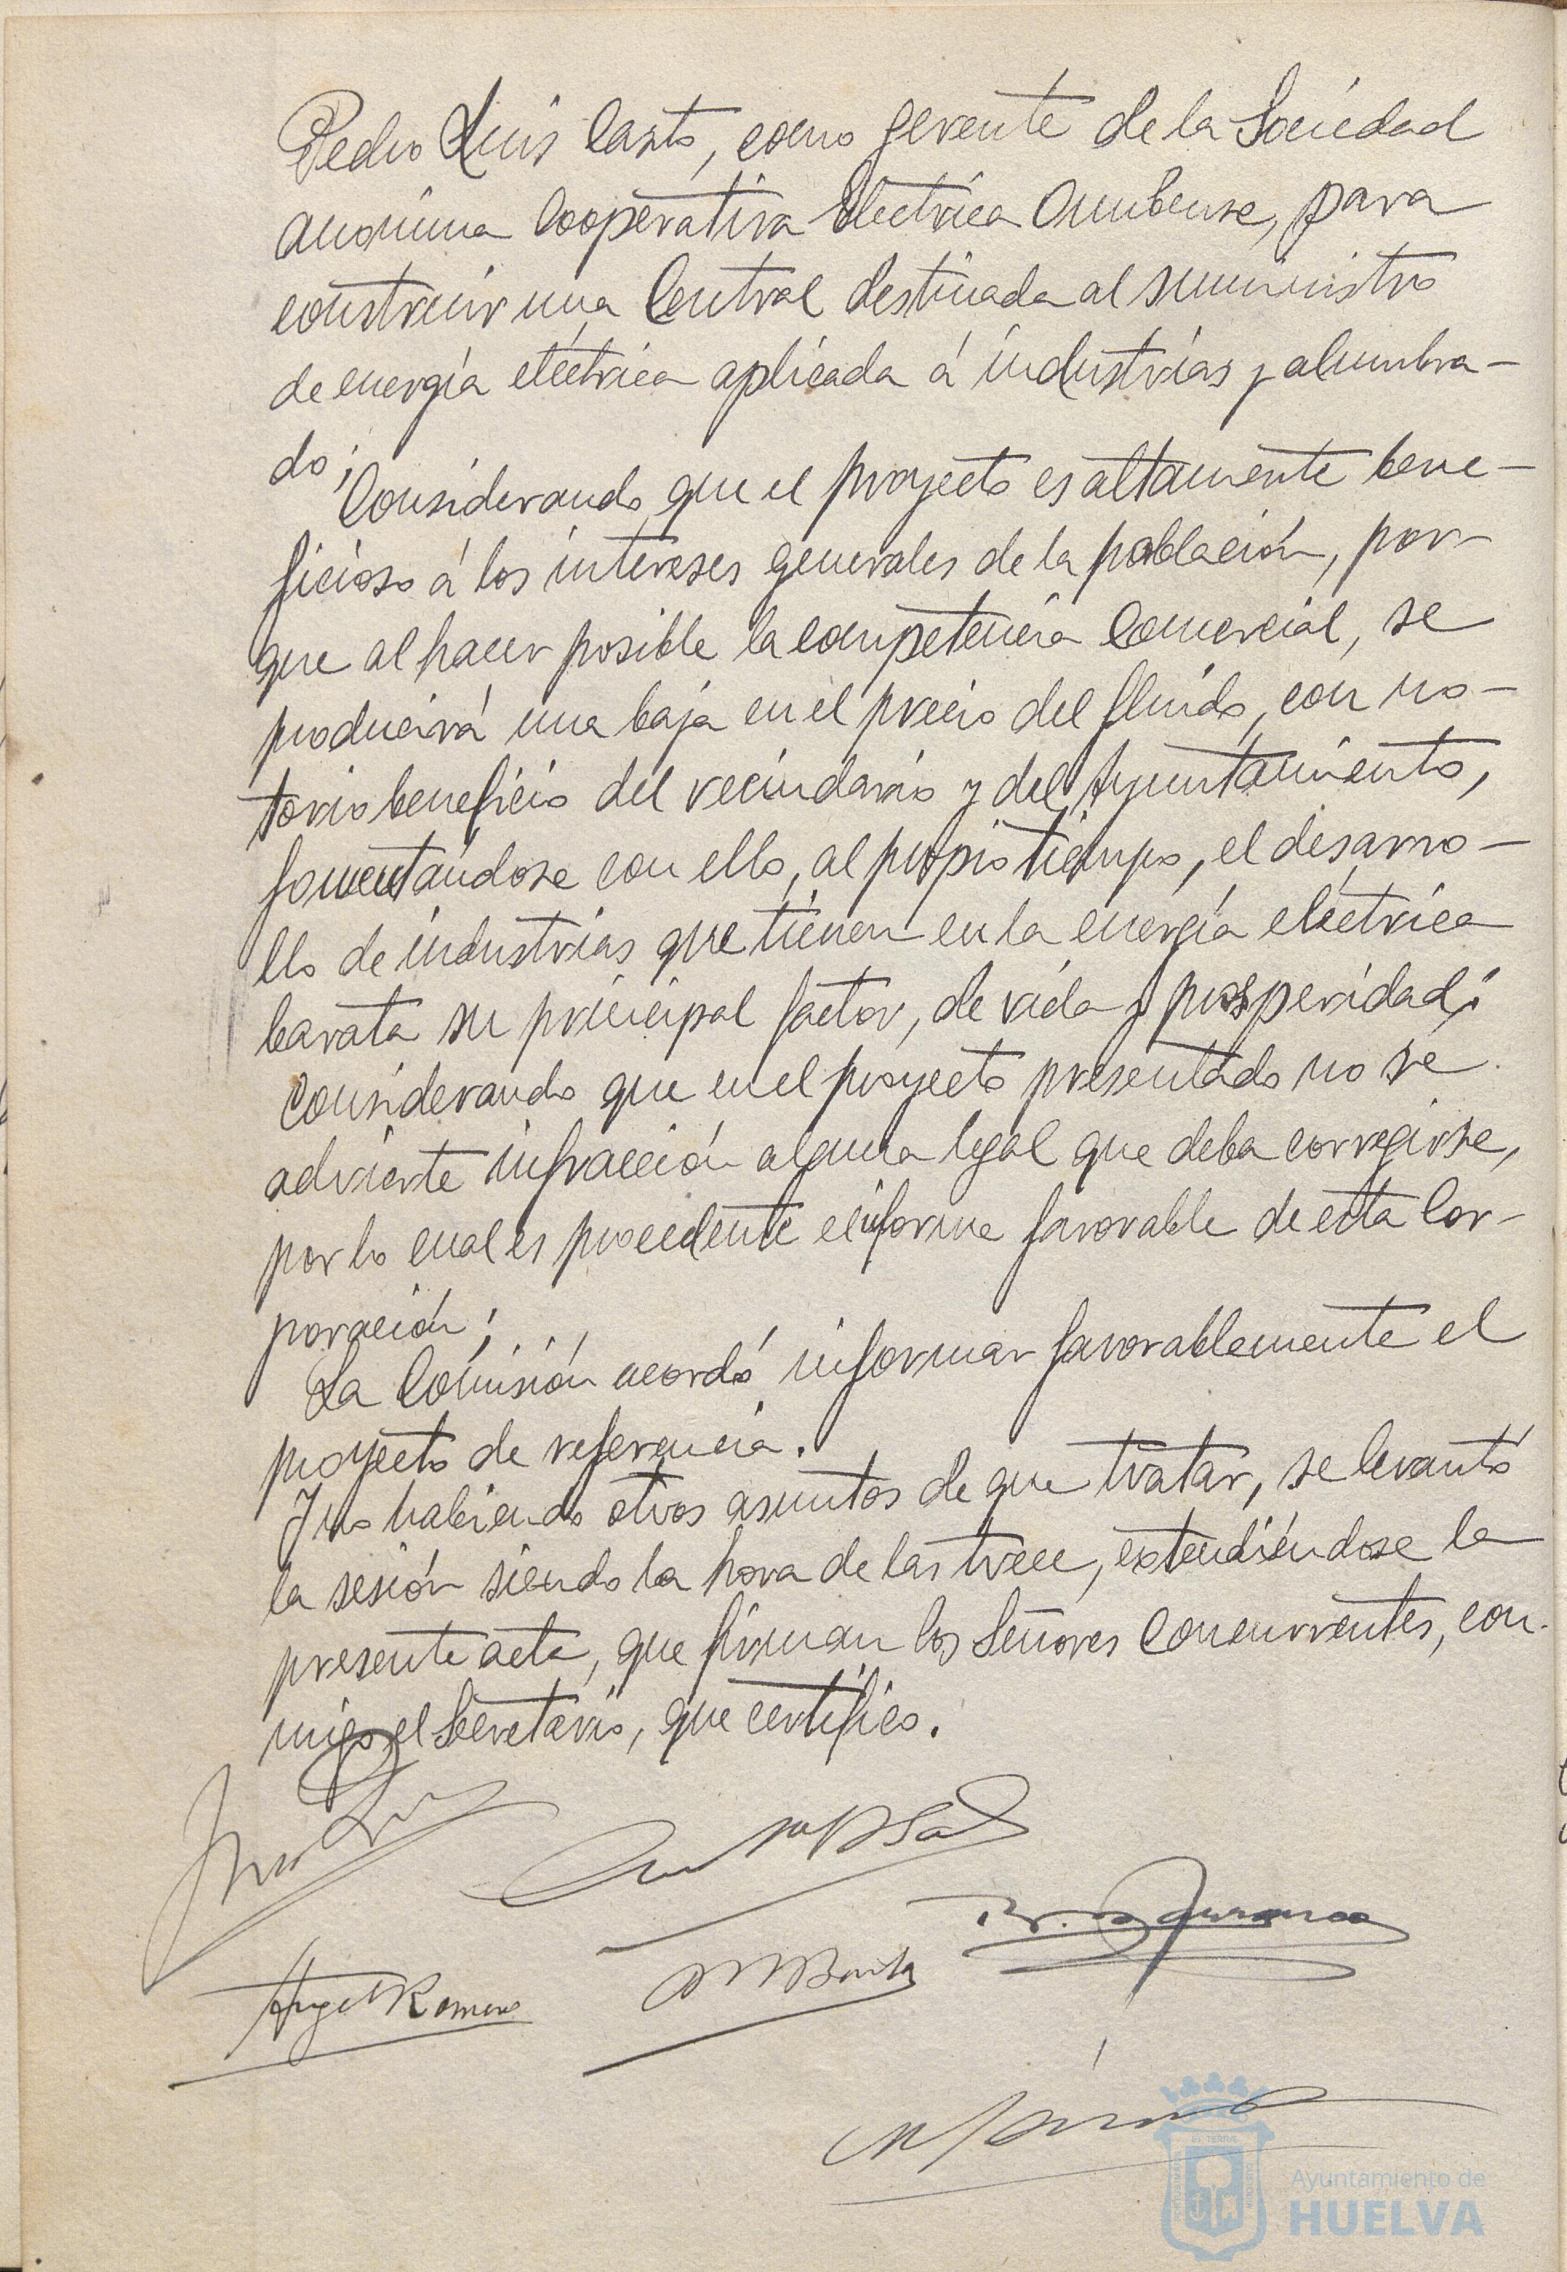 Pedro Luis Casto, como gerente de la Sociedad
anonima Cooperativa Electrica Onubense, para
construir una Central destinada al suministro
de energía eléctrica aplicada á industrias y alumbra-
do;
Considerando que el proyecto es altamente bene-
ficioso á los intereses generales de la población, por-
que al hacer posible la competencia comercial, se
producirá una baja en el precio del fluido, con no-
torio beneficio del vecindario y del Ayuntamiento,
fomentándose con ello, al propio tiempo, el desarro-
llo de industrias que tienen en la energía eléctrica
barata su principal factor, de vida y prosperidad;
Considerando que en el proyecto presentado no se
advierte infracción alguna legal que deba corregirse,
por lo cual es procedente el informe favorable de esta Cor-
poración;
La Comisión acordó informar favorablemente el
proyecto de referencia.
Y no habiendo otros asuntos de que tratar, se levantó
la sesión siendo la hora de las trece, extendiéndose la
presente acta, que firman los Señores Concurrentes, con-
migo el Secretario, que certifico.
Angel Romero
EL TERRÆ
Ayuntamiento de
HUELVA